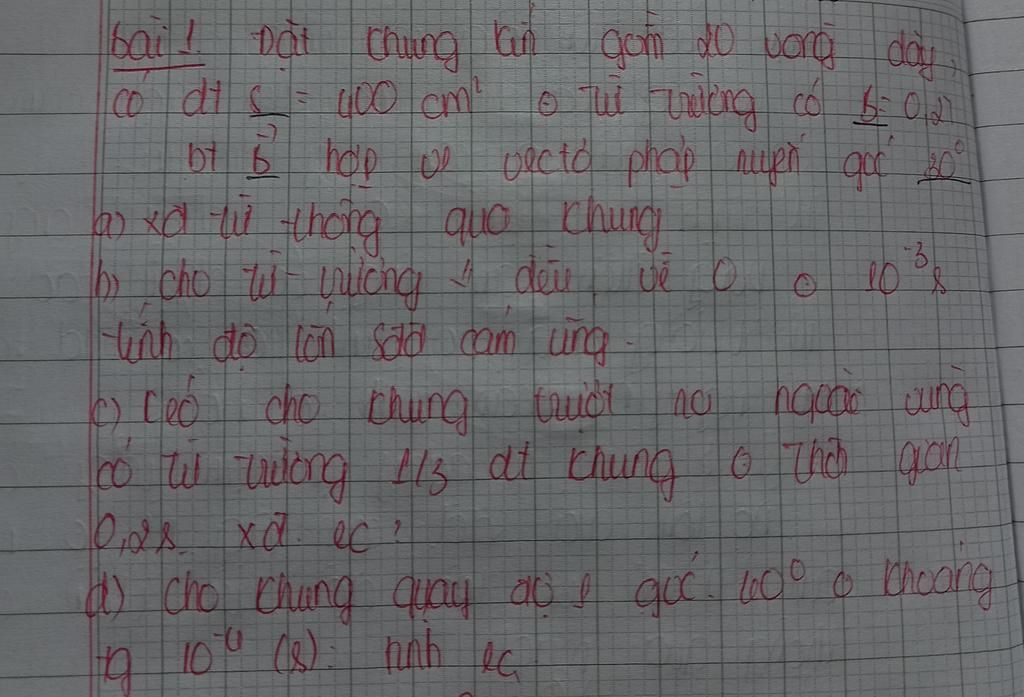 bài 1. Đặt khung kín gồm 20 vòng dây,
có dt S = 400 cm² ở từ trường có B = 0,2T
bt B⃗ hợp vectơ pháp tuyến góc
a) xđ từ thông qua khung
b) cho từ trường ↓ đều về 0 10⁻³s
tính độ lớn sđđ cảm ứng.
c) kéo cho khung trượt ra ngoài vùng
có từ trường 1/3 dt khung thời gian
0,2s xđ ec?
d) cho khung quay góc khoảng
tg (s). tính ec